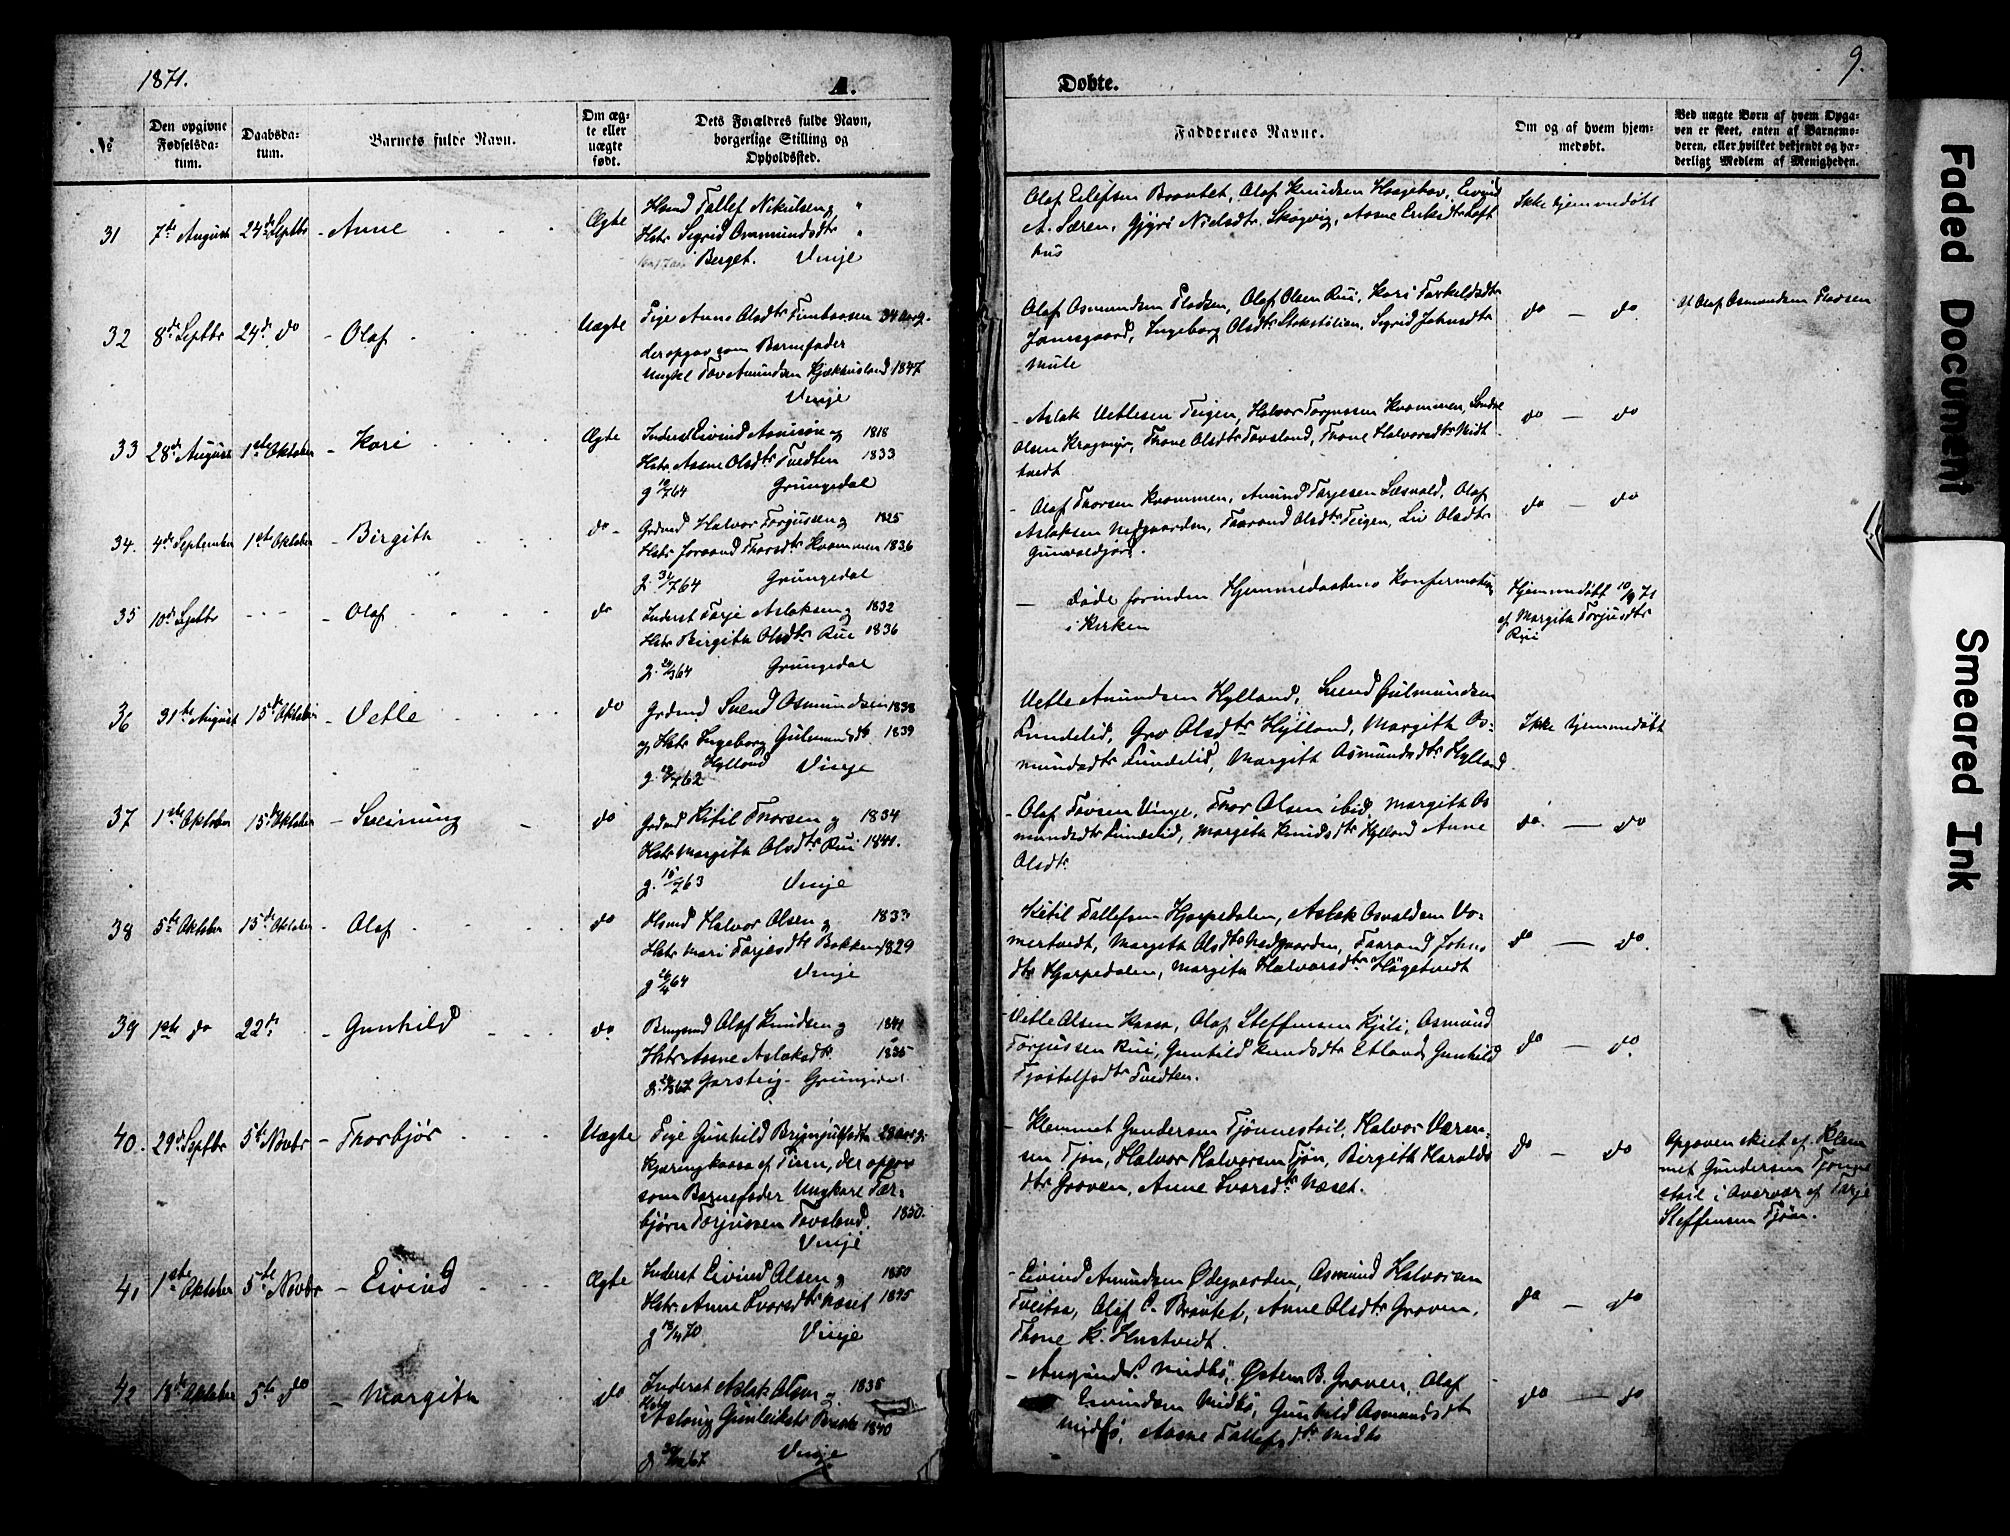 1871.
A.
Døbte.
9.
No
Den opgivne Fødselsdatum.
Daabsdatum.
Barnets fulde Navn.
Om ægte eller uægte født.
Dets Forældres fulde Navn, borgerlige Stilling og Opholdssted.
Faddernes Navne.
Om og af hvem hjemmedøbt.
Ved uægte Børn af hvem Opgaven er skeet, enten af Barnemoderen, eller hvilket bekjendt og hæderligt Medlem af Menigheden.
31 7de August 24de Septbr - Anne Ægte
Hsmd Tallef Nikulsen og
Hstr Sigrid Osmundsdtr
Berget. Vinje
Olaf Eilefsen Brautet, Olaf Knudsen Haagetav, Eivind
A. Særen, Gjyri Nielsdtr Skogvig, Aasne Eriksdtr Loft
hus
Ikke hjemmedøbt
32 8de Septbr 24de do - Olaf Uægte
Pige Anne Olsdtr 34 Aar g.
der opgav som Barnefader
Ungkl Tov Amundsen Kjækhusland 1847
Vinje
Olaf Osmundsen Flodsen, Olaf Olsen Rui, Kari Torkeldsdtr
Jamsgaard, Ingeborg Olsdtr Stokstølien, Sigrid Johnsdtr
Mule
do - do
af Olaf Osmundsen Flodsen
33 28de August 1ste Oktober - Kari Ægte
Inderst Eivind Aanison og 1818
Hstr Aasne Olsdtr Tvedten 1833
g 764 Grungedal
- Aslak Vetlesen Teigen, Halvor Torgussen Kvammen, Sondre
Olsen Kragmyr, Thone Olsdtr Tovsland, Thone Halvorsdtr Midt
tvedt
do - do
34. 4de September 1ste Oktober - Birgith do -
Grdmd Halvor Torjussen og 1825
Hstr Joraand Thorsdtr Kvammen 1836
g. 31/7 64 Grungedal
- Olaf Thorsen Kvammen, Amund Tarjesen Læsvold, Olaf
Aslaksen Nedgaarden, Taarand Olsdtr Teigen, Liv Olsdtr
Gunvaldjord.
do - do
35 10de Septbr - - - - Olaf do
Inderst Tarje Aslaksen og 1832
Hstr Birgith Olsdtr Rue 1836
g. 64 Grungedal
- Døde forinden Hjemmedaabens Konfirmation
i Kirken
Hjemmedøbt 10/9 71
af Margith Torjusdtr
Rui
36 31te August 15de Oktober - Vetle do
Grdmd Svend Osmundsen 1838
og Hstr Ingeborg Gulmundsdtr 1839
Hylland
g. 762 Vinje
Vetle Amundsen Hylland, Svend Gulmundsen
Lundelid, Gro Olsdtr Hylland, Margith Os-
mundsdtr Lundelid, Margith Osmundsdtr Hylland
Ikke hjemmedøbt
37 1ste Oktober 15de Oktober - Sveinung do
Grdmd Kitil Thorsen og 1834
Hstr Margith Olsdtr Rui 1841.
g. 15/7 63 Vinje
- Olaf Tovsen Vinje, Thor Olsen ibid, Margith Os
mundsdtr Lundelid, Margith Knudsdtr Hylland Anne
Olsdtr
do. - do
38 5te Oktober 15de Oktober - Olaf do
Hsmd Halvor Olsen og 1833
Hstr Mari Tarjesdtr Bakken 1829
g 26/4 64 Vinje
Kitil Tallefsen Hjarpedalen, Aslak Osvaldsen Vo-
mertvedt, Margith Olsdtr Nedgaarden, Taarand Johns
dtr Hjarpedalen, Margith Halvorsdtr Høgetvedt
do - do.
39 1ste do 22de - Gunhild do.
Brugsmd Olaf Knudsen og 1841
Hstr Aasne Aslaksdtr 1835
g. 67 Garsteig - Grungedal.
- Vetle Olsen Haaa, Olaf Steffensen Kjili, Osmund
Torjussen Rui, Gunhild Knudsdtr Etland, Gunhild
Tjostolfsdtr Tvedten.
do - do.
40. 29de Septbr 5te Novbr - Thorbjør Uægte
Pige Gunhild Brynjulfsdtr 28 Aar g.
Kjæringkaasa af Tinn, der opgav
som Barnefader Ungkarl Tar-
bjørn Torjussen Tovsland. 1850.
Vinje
- Klemmet Gundersen Tjønnestøil, Halvor Væren-
sen Tjøn, Halvor Halvorsen Tjøn, Birgith Harolds
dtr Groven, Anne Ivarsdtr Næset.
do - do
Opgaven skeet af Klem
met Gundersen Tjønne
støil i Overvær af Tarje
Steffensen Tjøn.
41 1ste Oktober 5te Novbr - Eivind Ægte
Inderst Eivind Olsen og 1850
Hstr Anne Ivarsdtr Næset 1845
g 70 Vinje
- Eivind Amundsen Ødegaarden, Osmund Halvorsen
Tveitaa, Olaf O. Brautet, Anne Olsdtr Groven,
Thone K. Hustvedt.
do - do
42 18de Oktober 5te do - Margith do
Inderst Aslak Olsen og 1835
Hstr
Aslaug Gunleiksdtr 1840
g 67 Vinje
- Midbø, Østen B. Groven, Olaf
Eivindsen Midbø, Gunhild Osmundsdtr
Midbø, Aasne Tallefsdtr Midbø
do - do
Faded Document
Smeared Ink